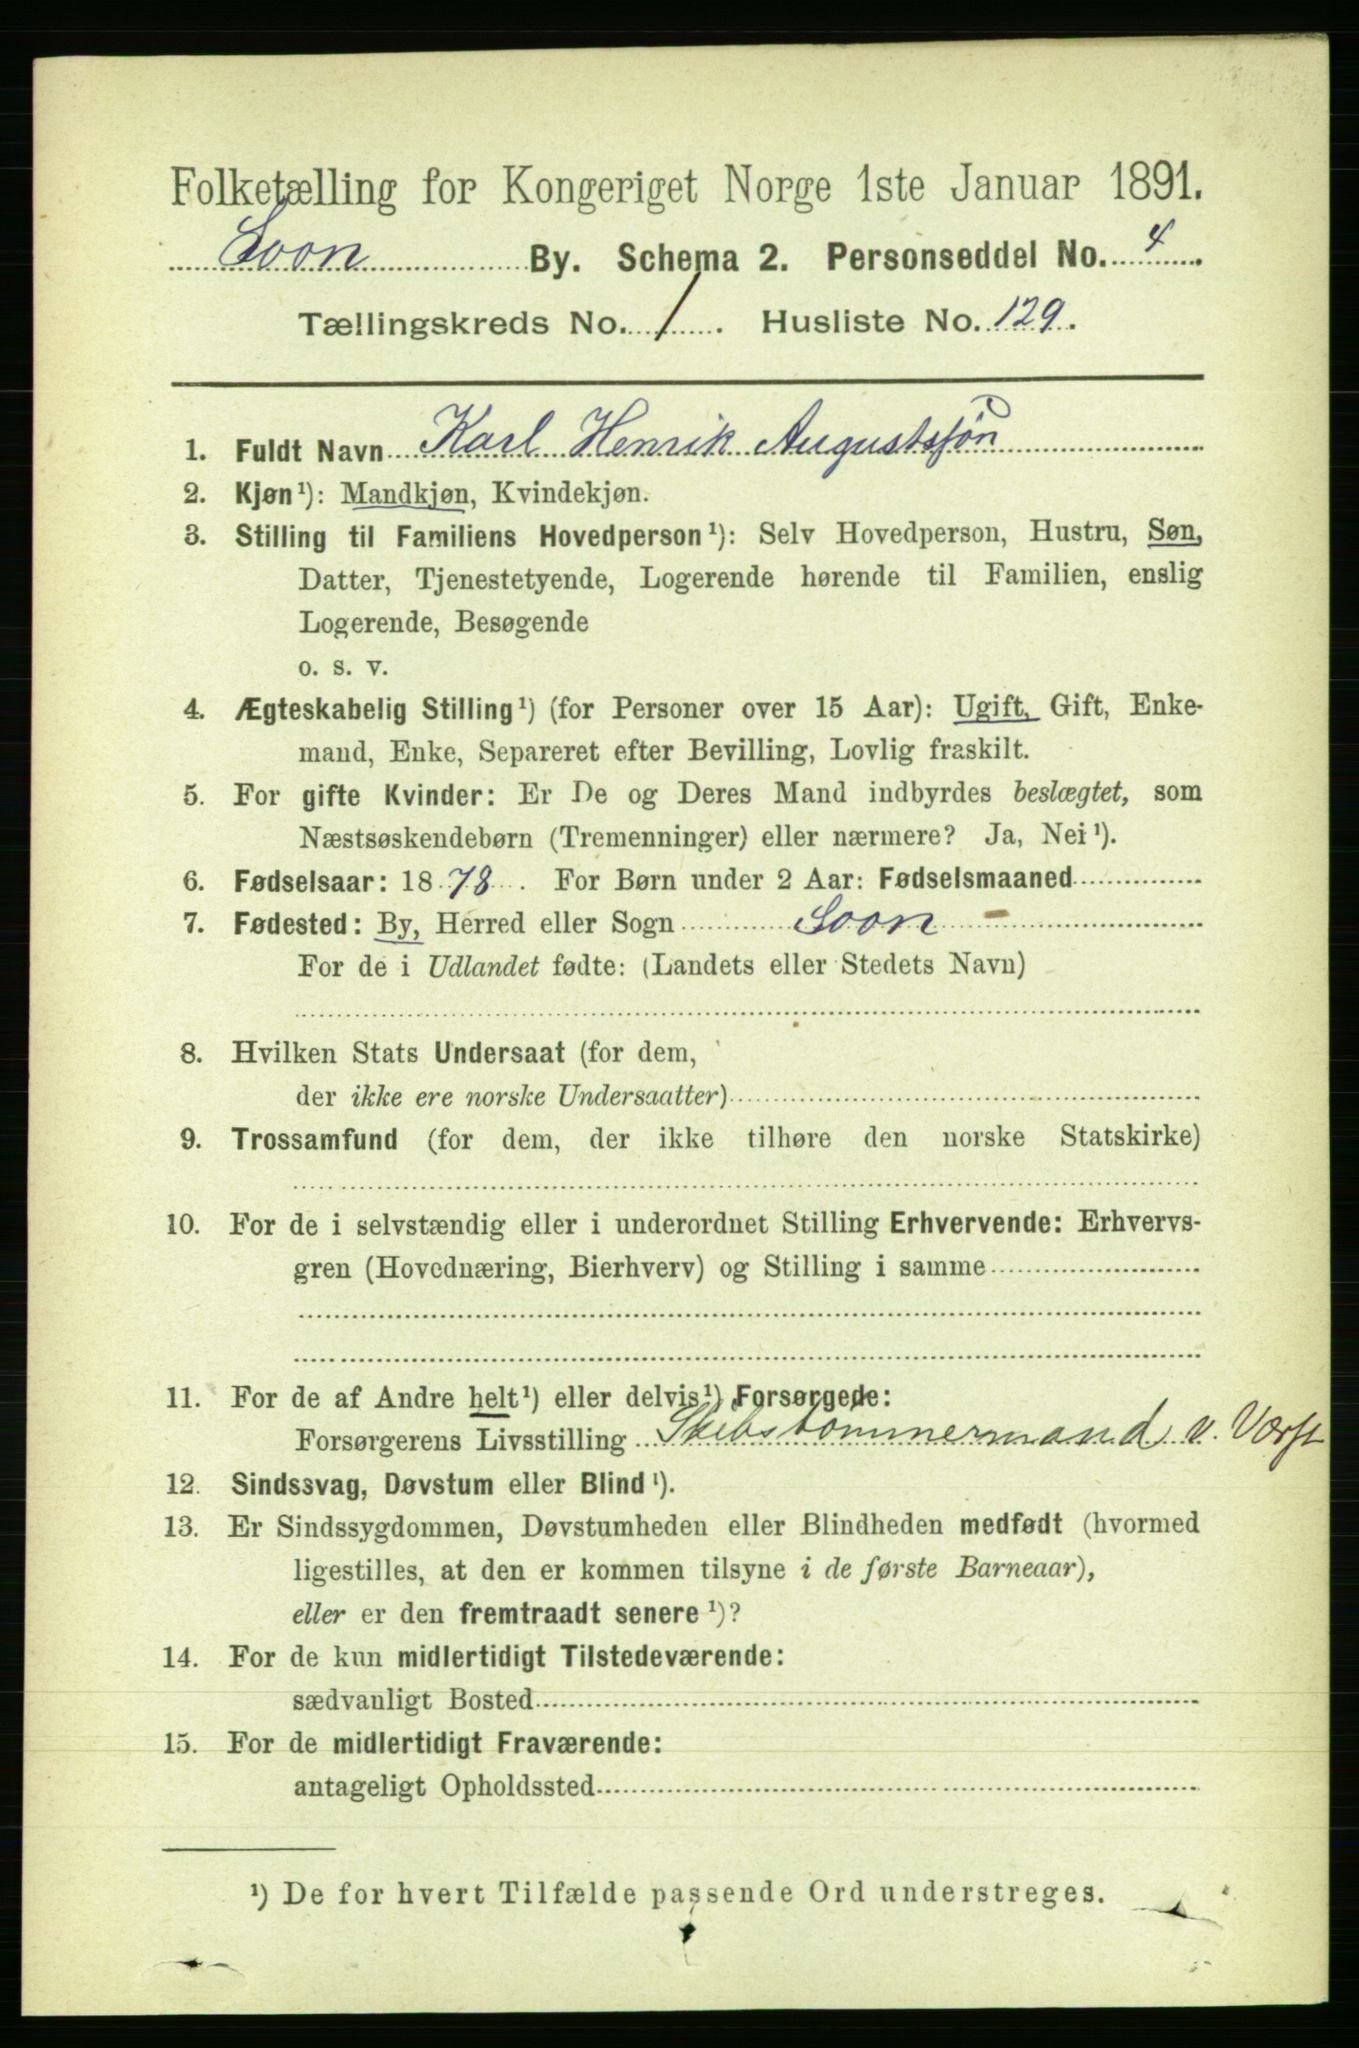 Folketælling for Kongeriget Norge 1ste Januar 1891.
Soon By. Schema 2. Personseddel No. 4
Tællingskreds No. 1. Husliste No. 129.
1. Fuldt Navn Karl Henrik Augustsön
2. Kjøn¹): Mandkjøn, Kvindekjøn.
3. Stilling til Familiens Hovedperson¹): Selv Hovedperson, Hustru, Søn,
Datter, Tjenestetyende, Logerende hørende til Familien, enslig
Logerende, Besøgende
o. s. v.
4. Ægteskabelig Stilling¹) (for Personer over 15 Aar): Ugift, Gift, Enke-
mand, Enke, Separeret efter Bevilling, Lovlig fraskilt.
5. For gifte Kvinder: Er De og Deres Mand indbyrdes beslægtet, som
Næstsøskendebørn (Tremenninger) eller nærmere? Ja, Nei¹).
6. Fødselsaar: 1878. For Børn under 2 Aar: Fødselsmaaned
7. Fødested: By, Herred eller Sogn Soon
For de i Udlandet fødte: (Landets eller Stedets Navn)
8. Hvilken Stats Undersaat (for dem,
der ikke ere norske Undersaatter)
9. Trossamfund (for dem, der ikke tilhøre den norske Statskirke)
10. For de i selvstændig eller i underordnet Stilling Erhvervende: Erhvervs-
gren (Hovednæring, Bierhverv) og Stilling i samme
11. For de af Andre helt¹) eller delvis¹) Forsørgede:
Forsørgerens Livsstilling Skibstømmermand v. Værft
12. Sindssvag, Døvstum eller Blind¹).
13. Er Sindssygdommen, Døvstumheden eller Blindheden medfødt (hvormed
ligestilles, at den er kommen tilsyne i de første Barneaar),
eller er den fremtraadt senere¹)?
14. For de kun midlertidigt Tilstedeværende:
sædvanligt Bosted
15. For de midlertidigt Fraværende:
antageligt Opholdssted
¹) De for hvert Tilfælde passende Ord understreges.